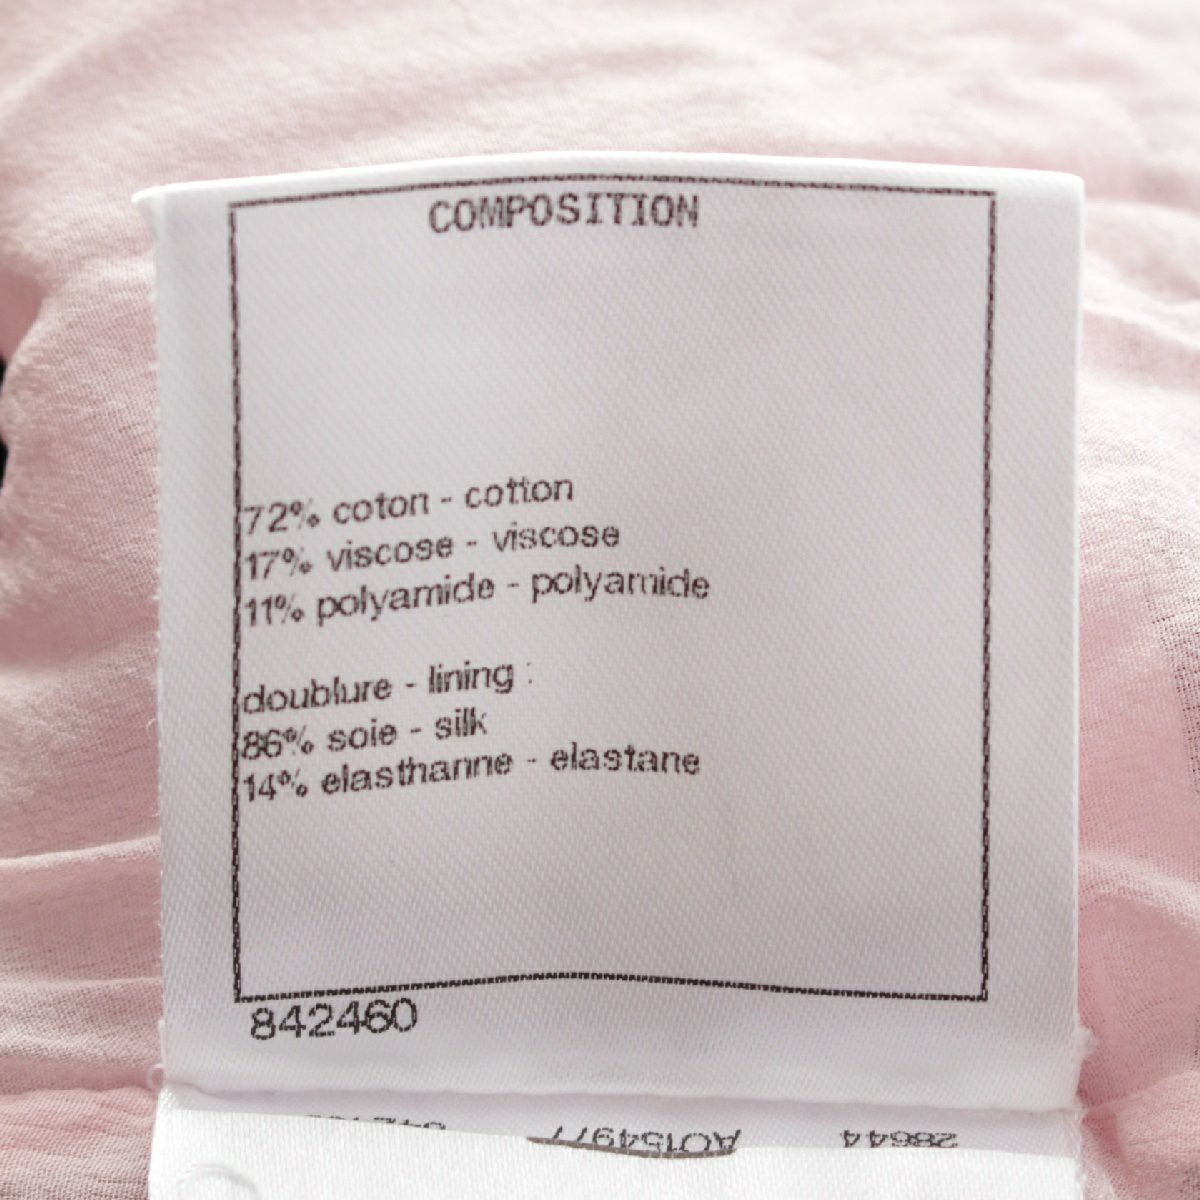 COMPOSITION
72% coton - cotton
17% viscose - viscose
11% polyamide - polyamide
doublure - lining :
86% soie - silk
14% elasthanne - elastane
842460
AO154977 28644